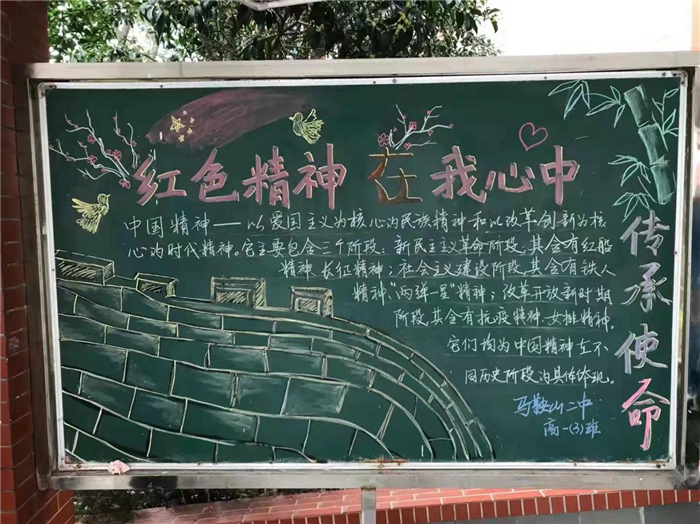 红色精神在我心中
中国精神——以爱国主义为核心的民族精神和以改革创新为核
心的时代精神。它主要包含三个阶段：新民主主义革命阶段，其含有红船
精神、长征精神；社会主义建设阶段，其含有铁人
精神、“两弹一星”精神；改革开放新时期
阶段，其含有抗疫精神、女排精神。
它们均为中国精神在不
同历史阶段的具体体现。
马鞍山二中
高一(3)班
传承使命